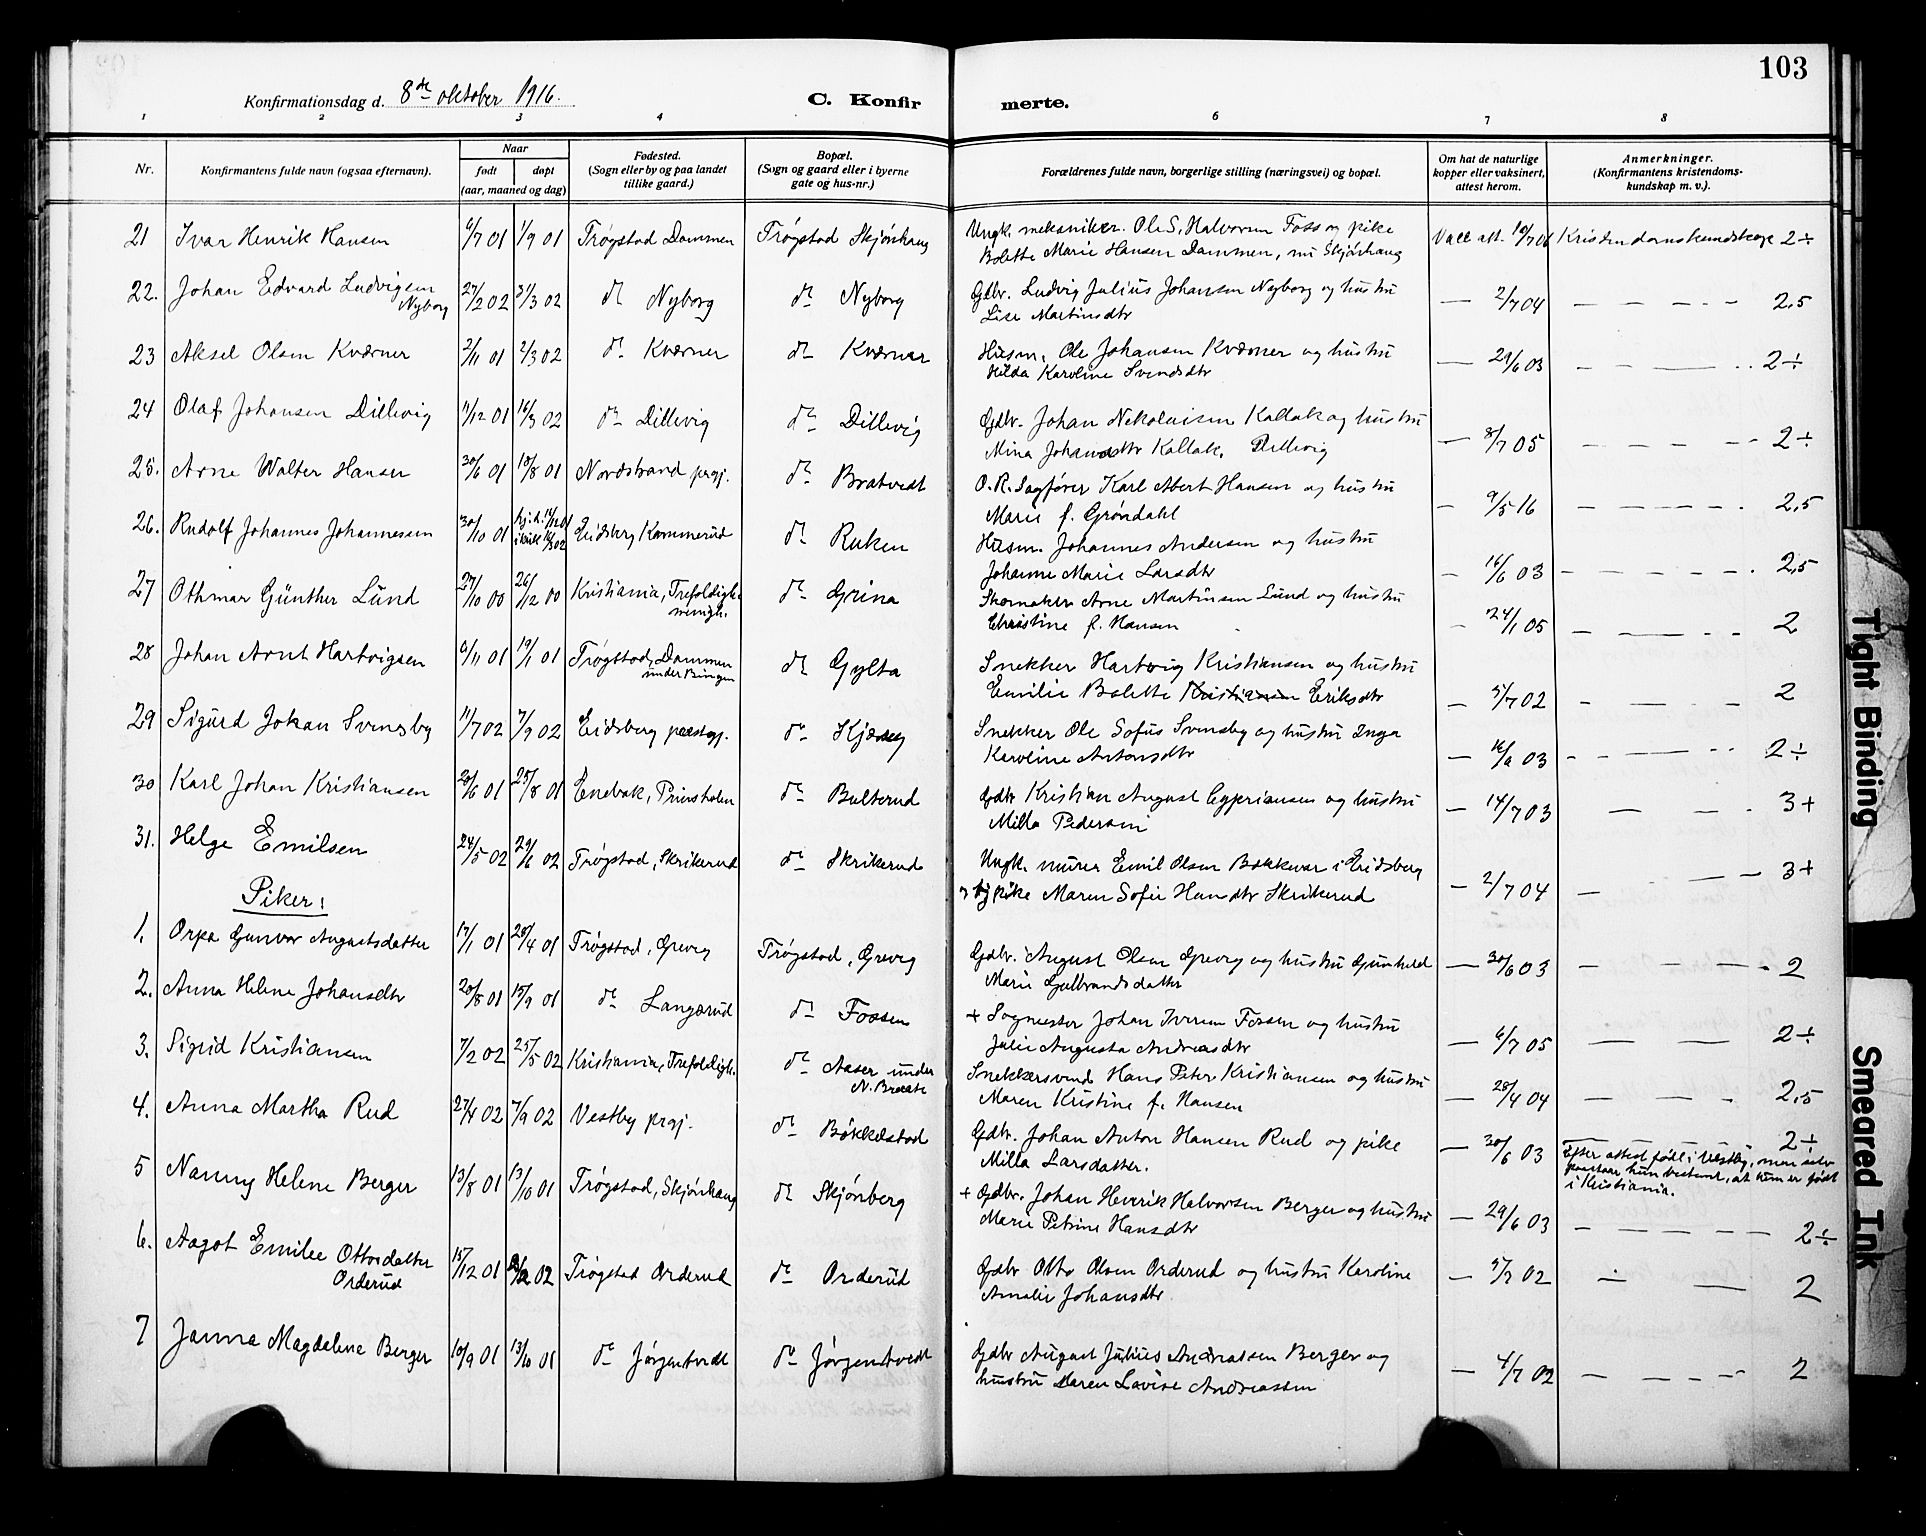 103
Konfirmationsdag d. 8de oktober 1916.
C. Konfirmerte.
1 2 3 4 6 7 8
Nr.
Konfirmantens fulde navn (ogsaa efternavn).
Naar
født døpt
(aar, maaned og dag)
Fødested.
(Sogn eller by og paa landet
tillike gaard.)
Bopæl.
(Sogn og gaard eller i byerne
gate og hus-nr.)
Forældrenes fulde navn, borgerlige stilling (næringsvei) og bopæl.
Om hat de naturlige
kopper eller vaksinert,
attest herom.
Anmerkninger.
(Konfirmantens kristendoms-
kundskap m. v.).
21 Ivar Henrik Hansen 6/7 01 1/9 01 Trøgstad Dammen Trøgstad Skjønhaug Ungk. mekaniker. Ole S. Halvorsen Foss og pike
Bolette Marie Hansen Dammen, nu Skjønhaug Vacc att. 10/7 06 Kristendomskundskap 2÷
22. Johan Edvard Ludvigsen
Nyborg 27/2 02 31/3 02 do Nyborg do Nyborg Gdbr. Ludvig Julius Johansen Nyborg og hustru
Lise Martinsdtr — 2/7 04 — — — - — 2,5
23 Aksel Olsen Kværner 2/11 01 2/3 02 do Kværner do Kværner Husm. Ole Johansen Kværner og hustru
Hilda Karoline Svendsdtr — 29/6 03 - — — — 2÷
24 Olaf Johansen Dillevig 11/12 01 16/3 02 do Dillevig do Dillevig Gdbr. Johan Nikolaisen Kallak og hustru
Mina Johansdtr Kallak, Dillevig — 8/7 05 — — — — 2÷
25. Arne Walter Hansen 30/6 01 18/8 01 Nordstrand prgj. do Bratvedt O.R. Sagfører Karl Albert Hansen og hustru
Marie f. Grøndahl — 9/5 16 — — — — 2,5
26. Rudolf Johannes Johannessen 30/10 01 Eidsberg Kammerud do Ruken Husm. Johannes Andersen og hustru
Johanne Marie Larsdtr — 16/6 03 — — — — 2,5
27 Othmar Günther Lund 27/10 00 26/12 00 Kristiania, Trefoldigh.
menigh. do Grina Skomaker Arne Martinsen Lund og hustru
Christine f. Hansen — 24/1 05 — — — — 2
28 Johan Arnt Hartvigsen 9/11 01 19/1 01 Trøgstad, Dammen
under Bingen do Gylta Snekker Hartvig Kristiansen og hustru
Emilie Bolette Kristiansen Eriksdtr — 5/7 02 - — - — 2
29 Sigurd Johan Svinsby 11/7 02 7/9 02 Eidsberg præstgj. do Snekker Ole Sofus Svinsby og hustru Inga
Karoline Antonsdtr — 03 - — — — 2÷
30 Karl Johan Kristiansen 28/6 01 25/8 01 Enebak, Prinsholen do Bulterud Gdbr Kristian August Cyprianson og hustru
Milla Pedersen — 14/7 03 — — - 3+
31. Helge Emilsen 24/5 02 29/6 02 Trøgstad, Skrikerud do Skrikerud Ungk. murer Emil Olsen Bakkevar i Eidsberg
og pike Maren Sofie Hansdtr Skrikerud — 2/7 04 — - — — 3+
Piker:
1. Orpa Gunvor Augustsdatter 17/1 01 28/4 01 Trøgstad, Grevig Trøgstad, Grevig Gdbr. August Olsen Grevig og hustru Gunhild
Marie Gulbrandsdatter — 30/6 03 — — — — 2
2. Anna Helene Johansdtr 20/8 01 15/9 01 do Langerud do Fossen + Johan Iversen Fossen og hustru
Julie Augusta Andreasdtr — 6/7 05 — — — 2÷
3. Sigrid Kristiansen 7/2 02 25/5 02 Kristiania, Trefoldigh. do Aaser under
N. Braate Snekkersvend Hans Peter Kristiansen og hustru
Maren Kristine f. Hansen — 28/4 04 — — — 2,5
4. Anna Martha Rud 27/4 02 7/9 02 Vestby prgj. do Bøkkestad Gdbr. Johan Anton Hansen Rud og pike
Milla Larsdatter. — 30/6 03 2÷
Efter attest født i Vestby, men selv
paastaar hun bestemt, at hun er født
i Kristiania.
5 Nanny Helene Berger 13/8 01 13/10 01 Trøgstad, Skjønhaug do Skjønberg + Gdbr. Johan Henrik Halvorsen Berger og hustru
Marie Petrine Hansdtr — 29/6 03 - — — — 2÷
6. Aagot Emilie Ottosdatter
Orderud 15/12 01 02 Trøgstad Orderud do Orderud Gdbr Otto Olsen Orderud og hustru Karoline
Amalie Johansdtr — 5/7 02 — — 2
7 Janna Magdalene Berger 10/9 01 13/10 01 do Jørgentvedt do Jørgentvedt Gdbr August Julius Andreassen Berger og
hustru Maren Lovise Andreassen — 4/7 02 — — - — 2
Tight Binding
Smeared Ink